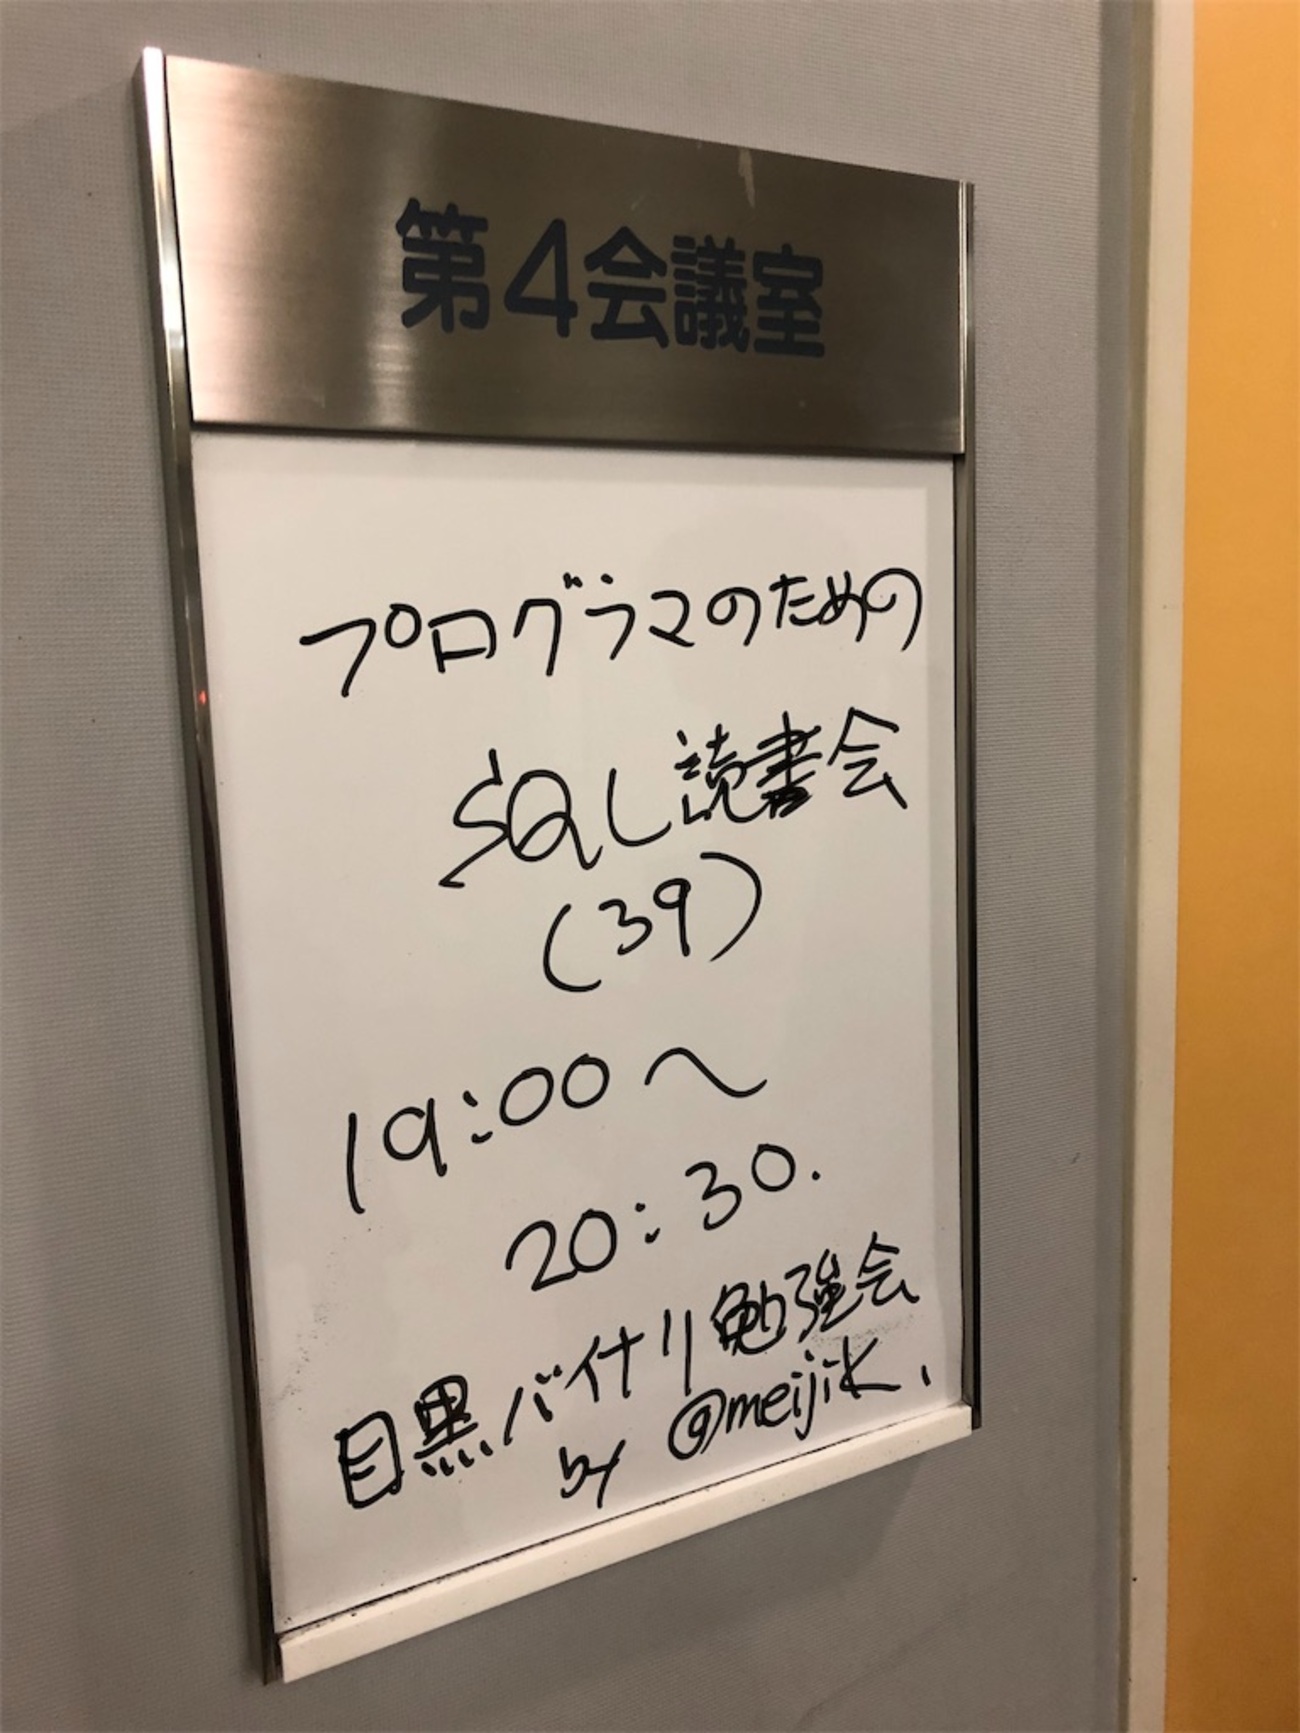 第4会議室
プログラマのための
SQL読書会
(39)
19:00〜
20:30.
目黒バイナリ勉強会
by @meijik.